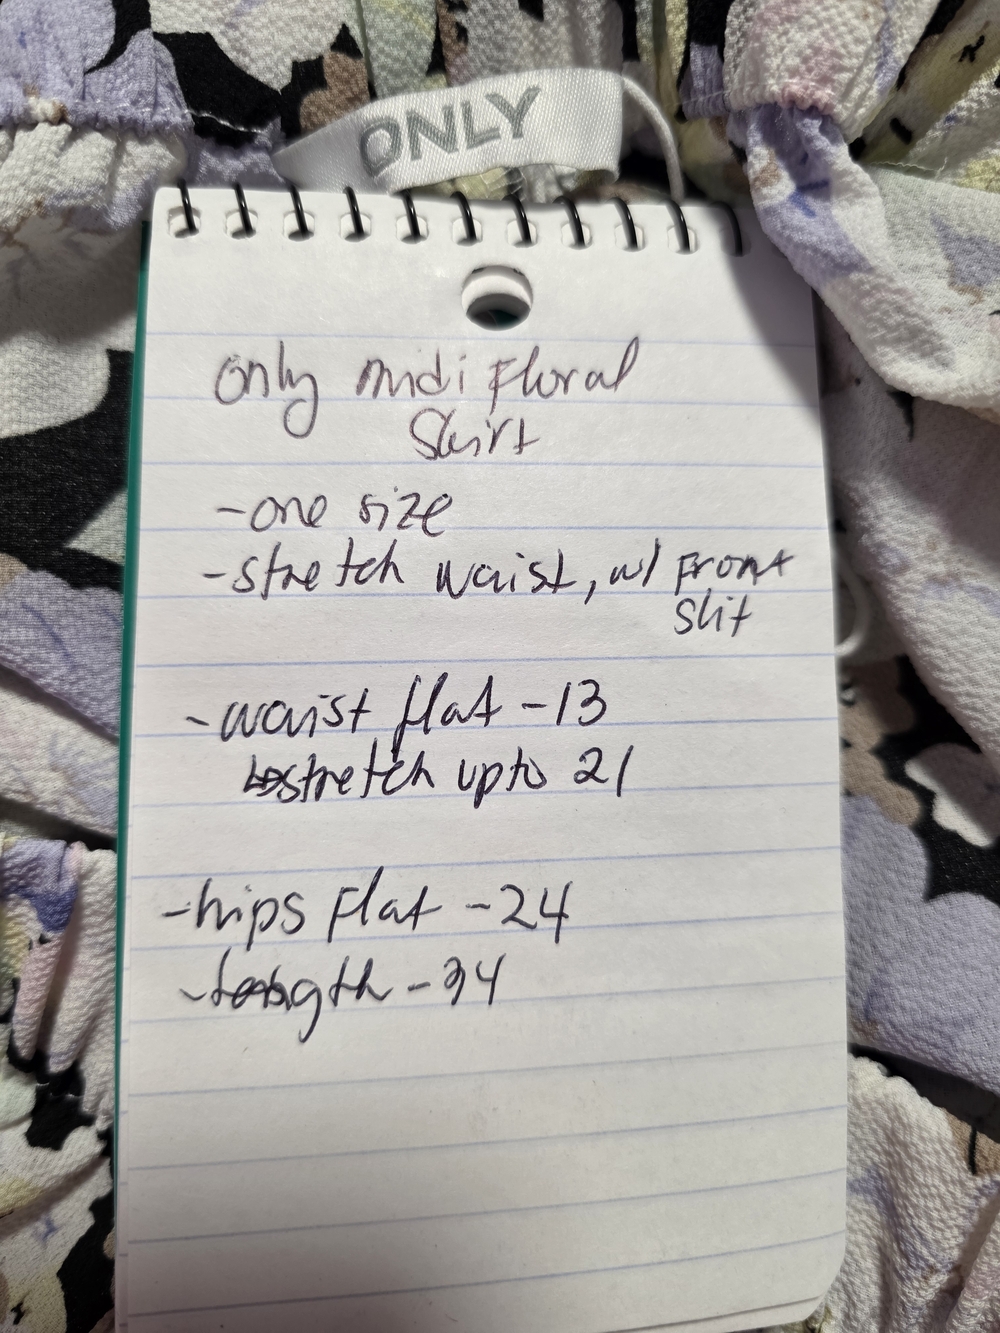 ONLY
Only midi Floral
Skirt
-one size
-stretch waist, w/ Front
slit
-waist flat -13
↳stretch upto 21
-hips Flat -24
-length -34